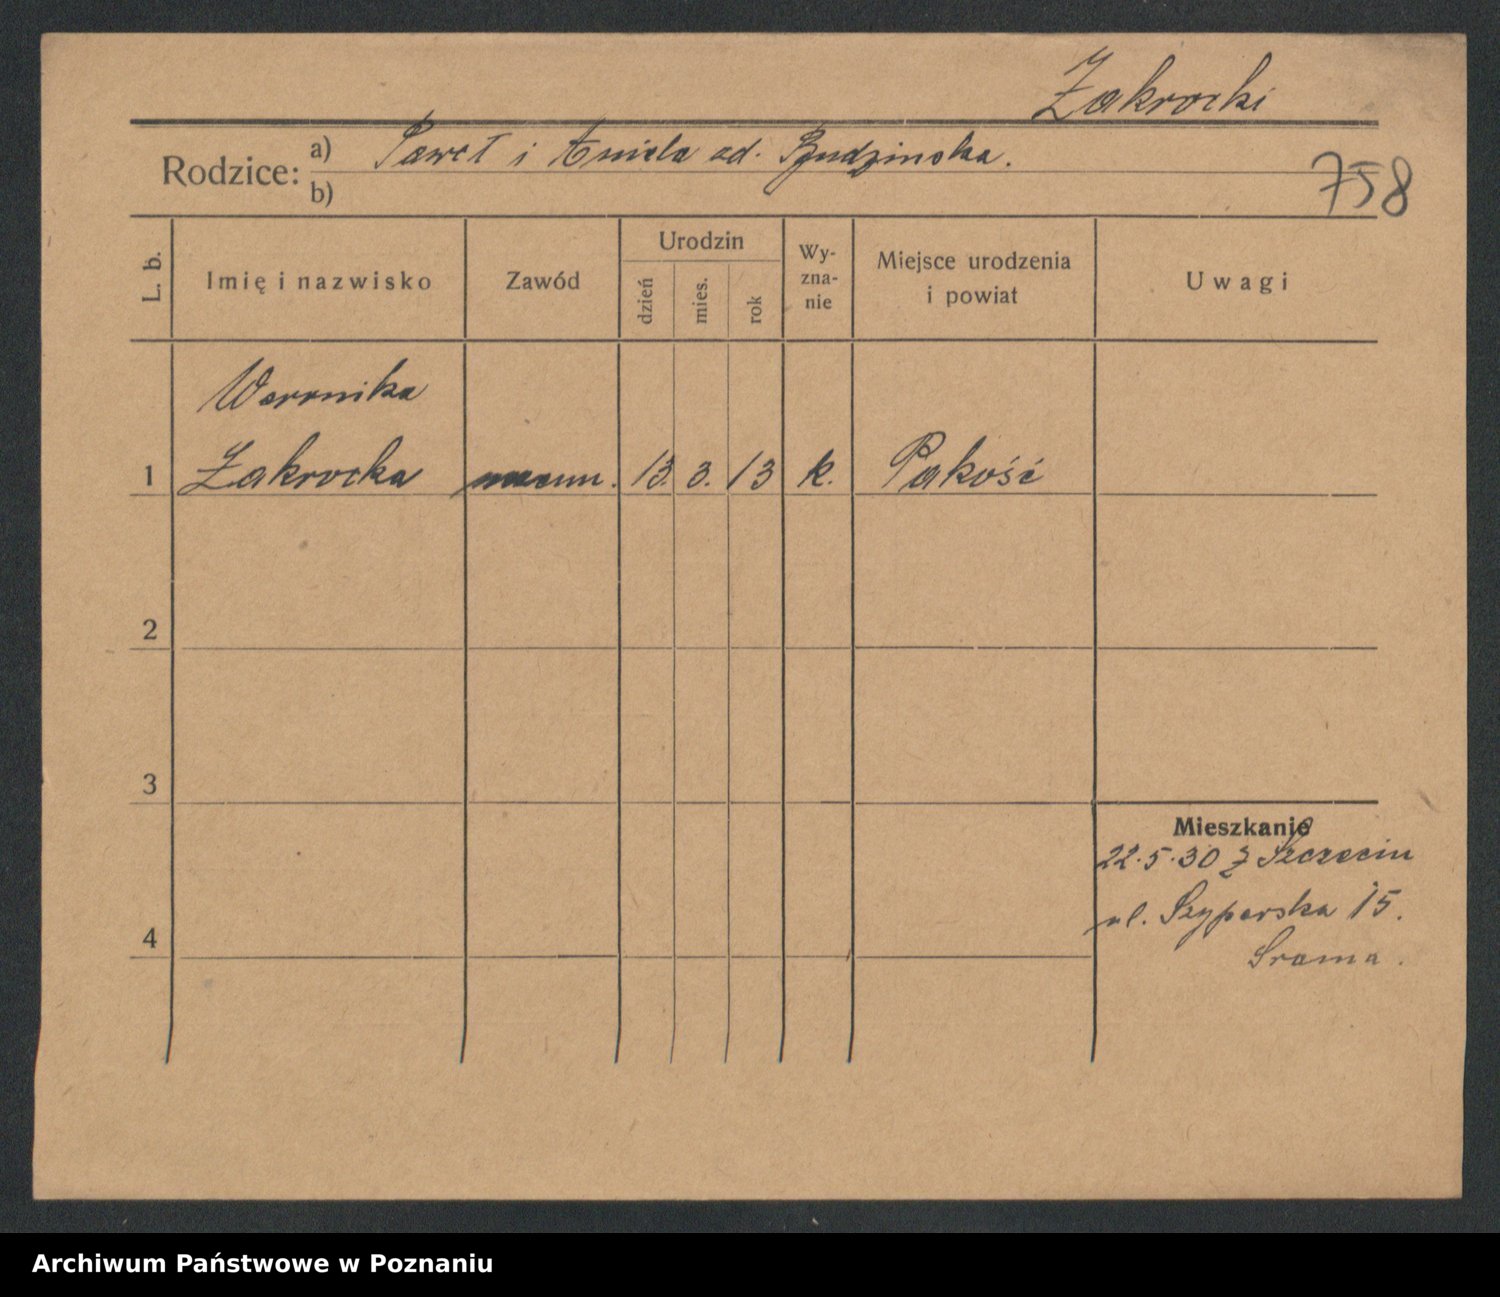 Zakrocki
Rodzice: a) Paweł i Aniela od. Budzinska.
b)
758
L. b.
Imię i nazwisko
Zawód
Urodzin
dzień
mies.
rok
Wy-
zna-
nie
Miejsce urodzenia
i powiat
Uwagi
Weronika
1 Zakrocka 13. 3. 13 k. Pakość
2
3
4
Mieszkanie
22.5.30 z Szczecin
ul. Szyperska 15.
Archiwum Państwowe w Poznaniu